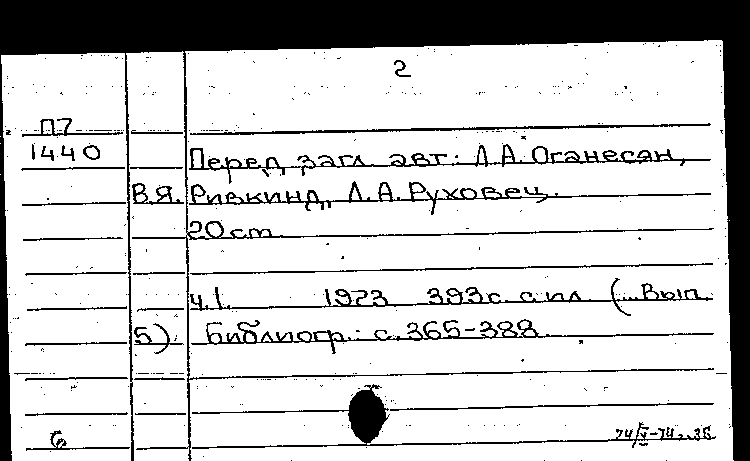 2
П7
1440
Перед загл. авт.: Л.А. Оганесян,
В.Я. Ривкинд, Л.А. Руховец.
20 cm
ч.1. 1973 393 с. с ил. (...Вып.
5) Библиогр.: с. 365-388.